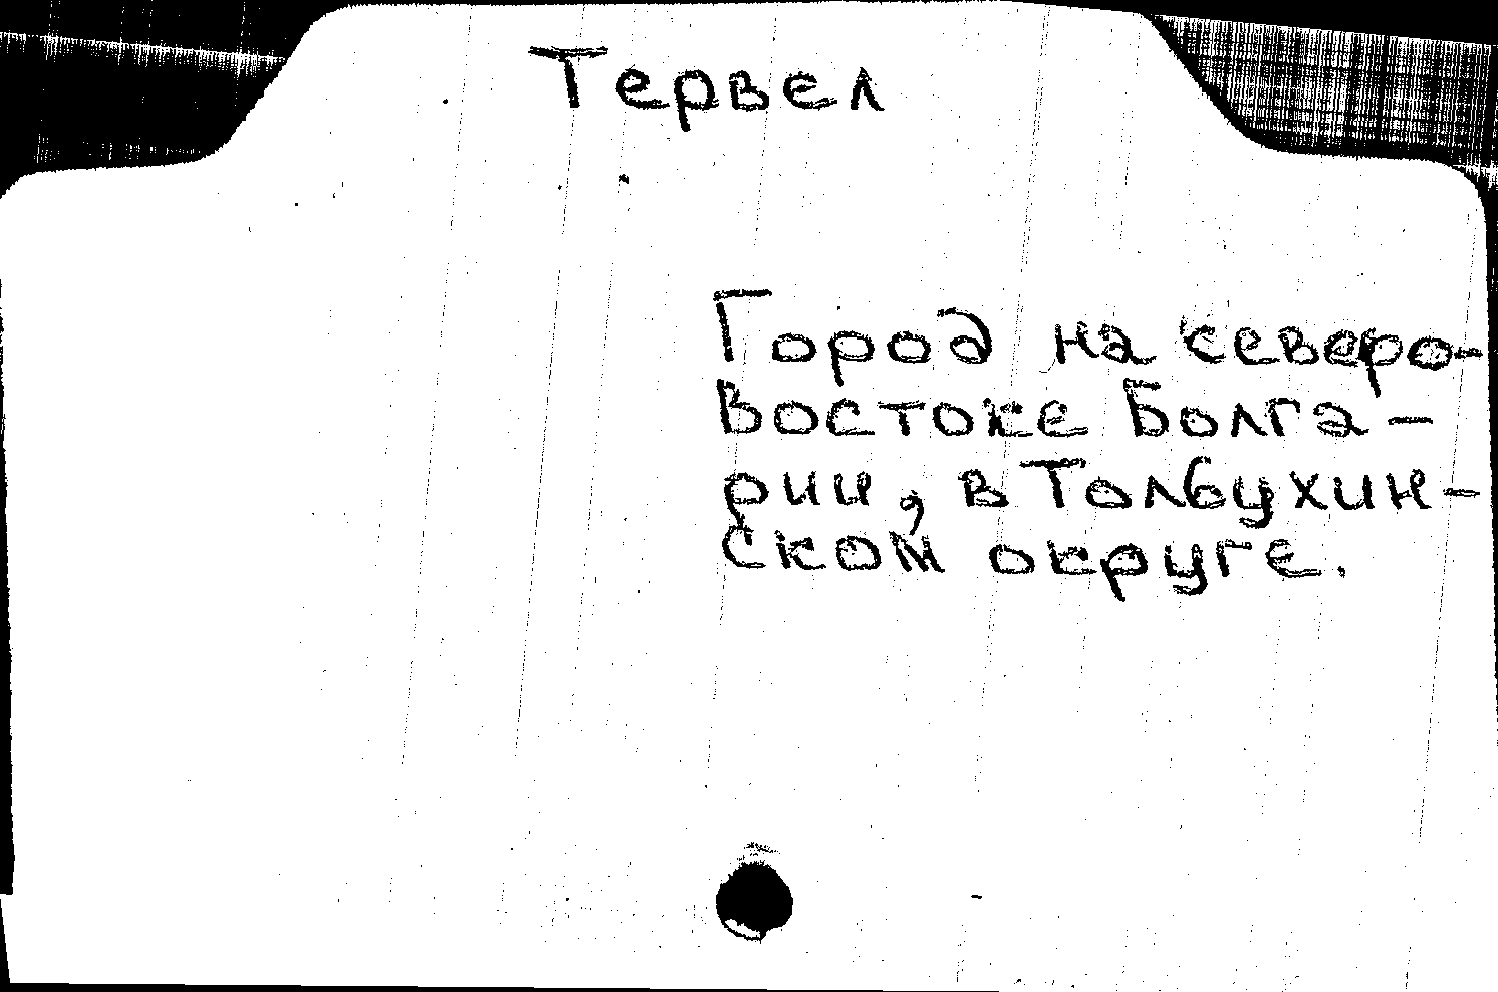 Тервел
Город на северо-
востоке Болга-
рии, в Толбухин-
ском округе.